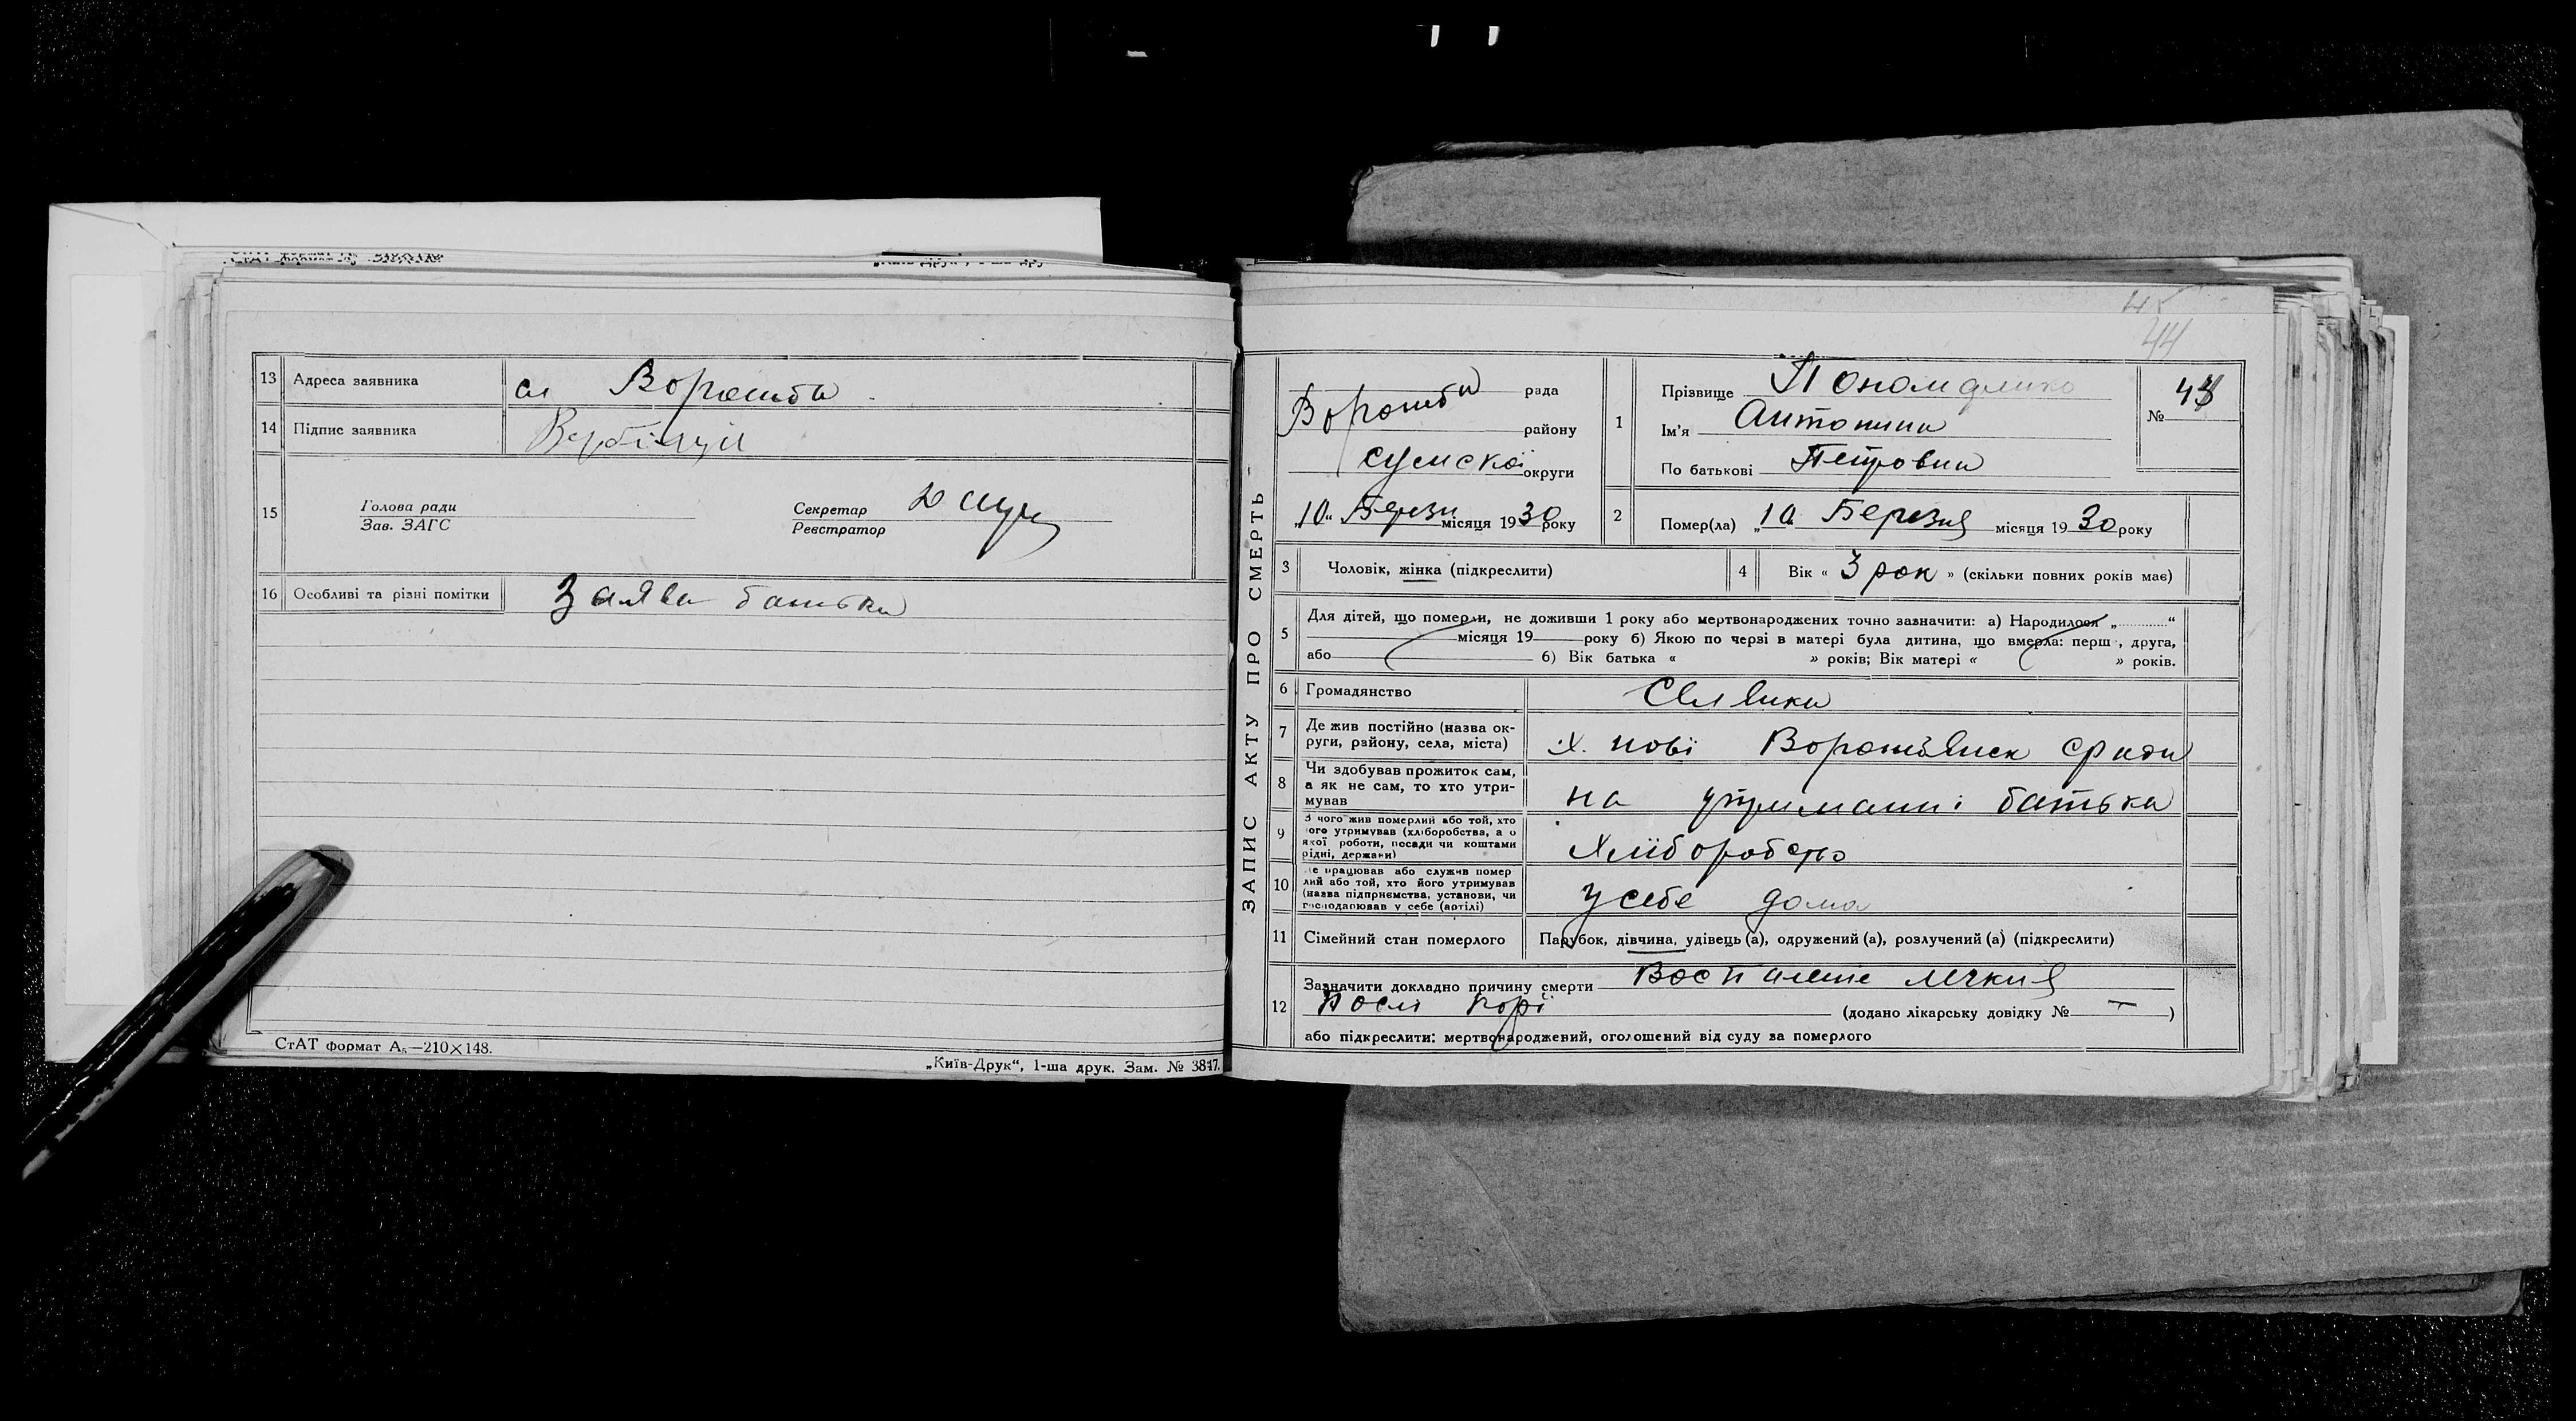 13 Адреса заявника сл Ворожба
14 Підпис заявника
15 Голова ради
Зав. ЗАГС
Секретар
Реєстратор
16 Особливі та різні помітки Заява батька
СтАТ формат А₅—210×148.
„Київ-Друк“, 1-ша друк. Зам. № 3817.
44
ЗАПИС АКТУ ПРО СМЕРТЬ
Ворожба рада
району
Сумскої округи
„10“ Березн місяця 1930 року
1 Прізвище Пономаренко
Ім'я Антонина
По батькові Петровна
№ 44
2 Помер(ла) „10 Березня місяця 1930 року
3 Чоловік, жінка (підкреслити)
4 Вік « 3 рок » (скільки повних років має)
5 Для дітей, що померли, не доживши 1 року або мертвонароджених точно зазначити: а) Народилося „ “
місяця 19 року б) Якою по черзі в матері була дитина, що вмерла: перш , друга,
або б) Вік батька « » років; Вік матері « » років.
6 Громадянство Селянка
7 Де жив постійно (назва ок-
руги, району, села, міста)
х. нові Ворожбянск
8 Чи здобував прожиток сам,
а як не сам, то хто утри-
мував
на утриманні батька
9 З чого жив померлий або той, хто
ого утримував (хліборобства, а о
якої роботи, посади чи коштами
рідні, держави)
Хліборобство
10 е працював або служив помер
лий або той, хто його утримував
(назва підприємства, установи, чи
господарював у себе (артілі)
У себе дома
11 Сімейний стан померлого Парубок, дівчина, удівець (а), одружений (а), розлучений (а) (підкреслити)
12 Зазначити докладно причину смерти Воспаление легкия
посля корі (додано лікарську довідку № — )
або підкреслити: мертвонароджений, оголошений від суду за померлого